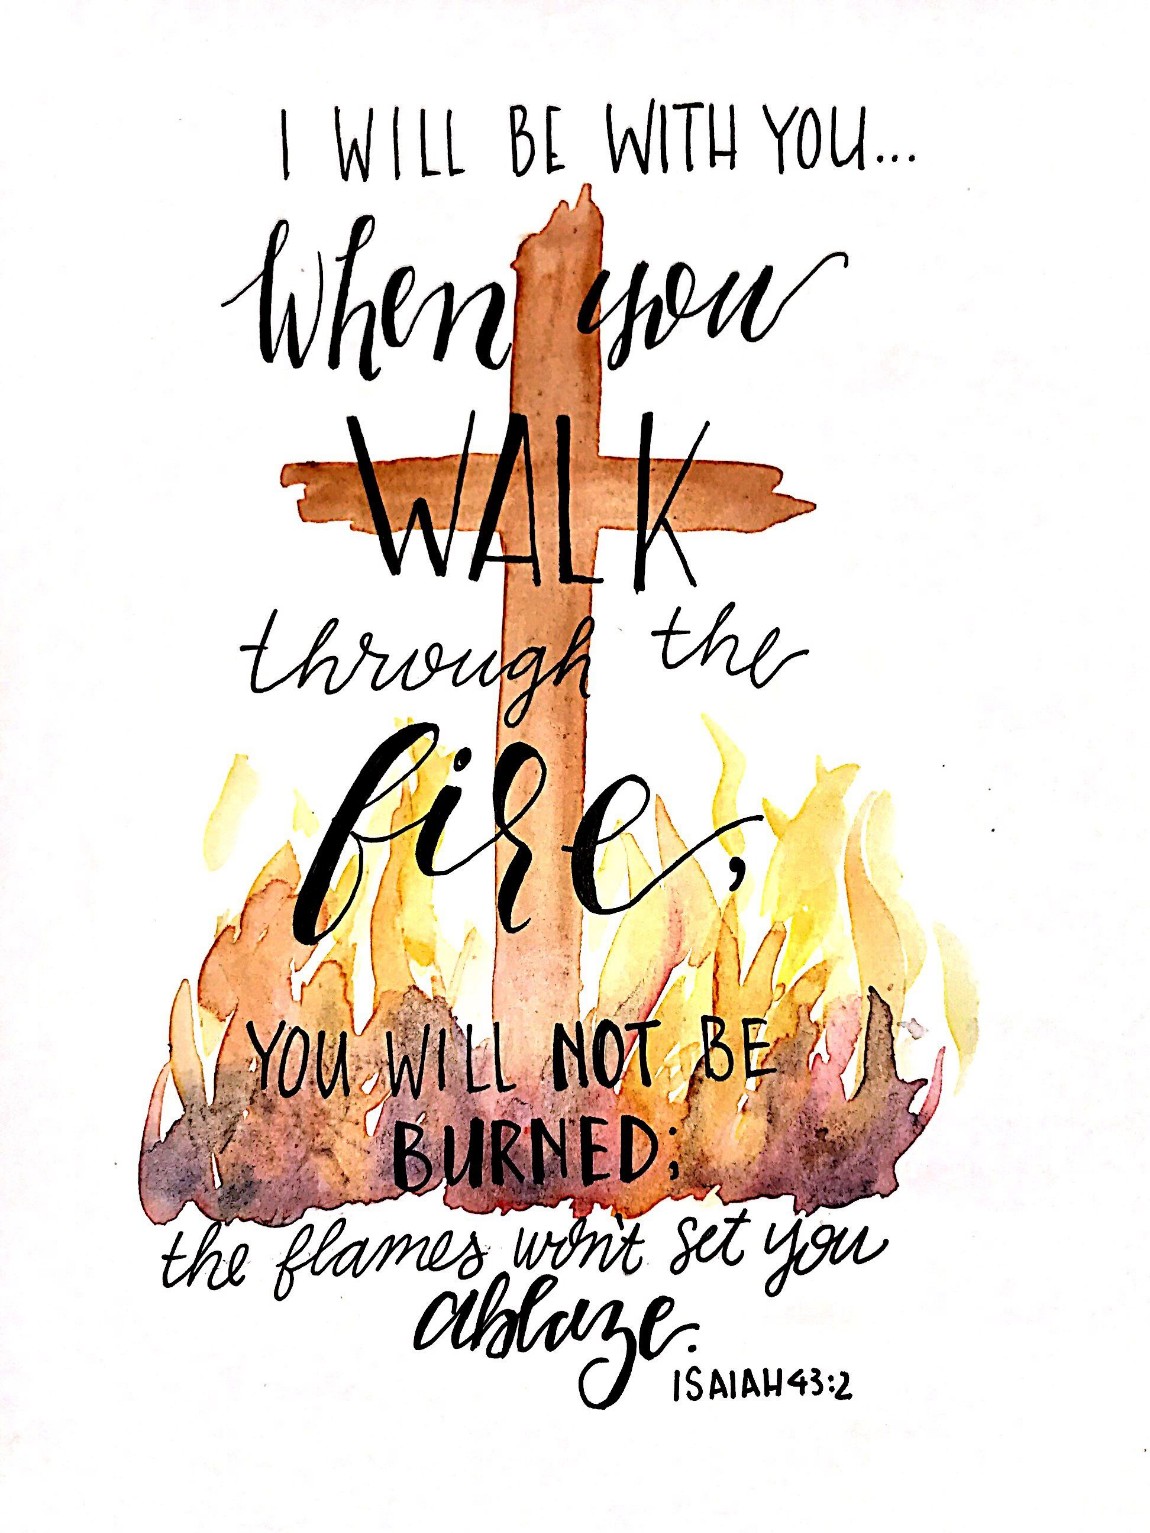 I WILL BE WITH YOU...
When you
WALK
through the
fire,
YOU WILL NOT BE
BURNED;
the flames won't set you
ablaze.
ISAIAH 43:2